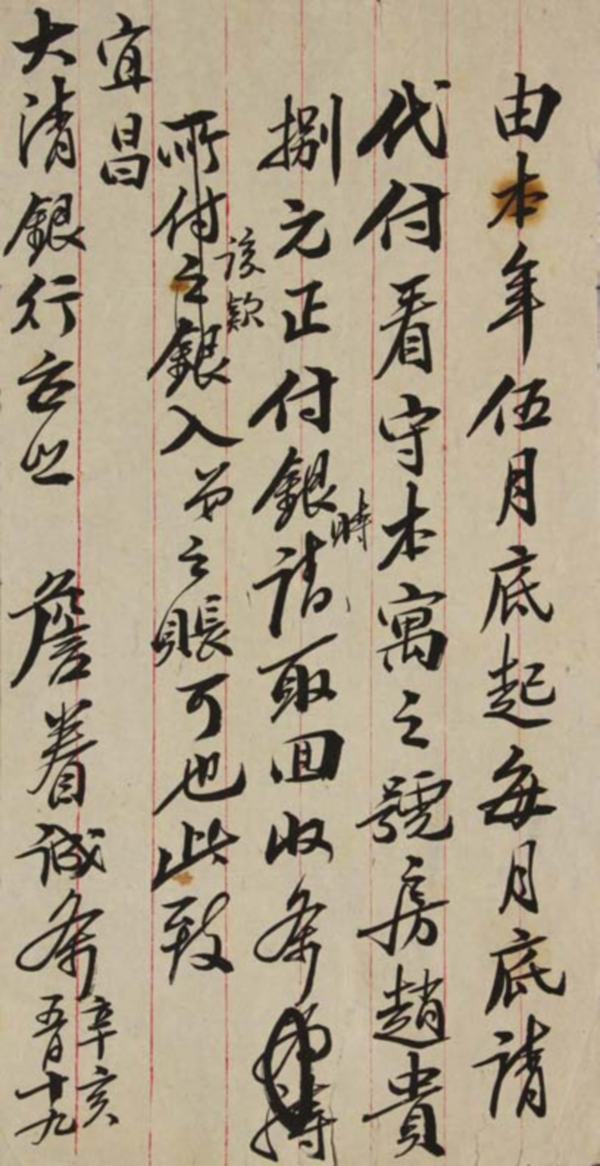 由本年伍月底起每月底請
代付看守本寓之號房趙貴
捌元正付銀時請取回收条
該款
所付之銀入弟之賬可也此致
宜昌
大清銀行台照
詹眷誠条
辛亥
五月十九